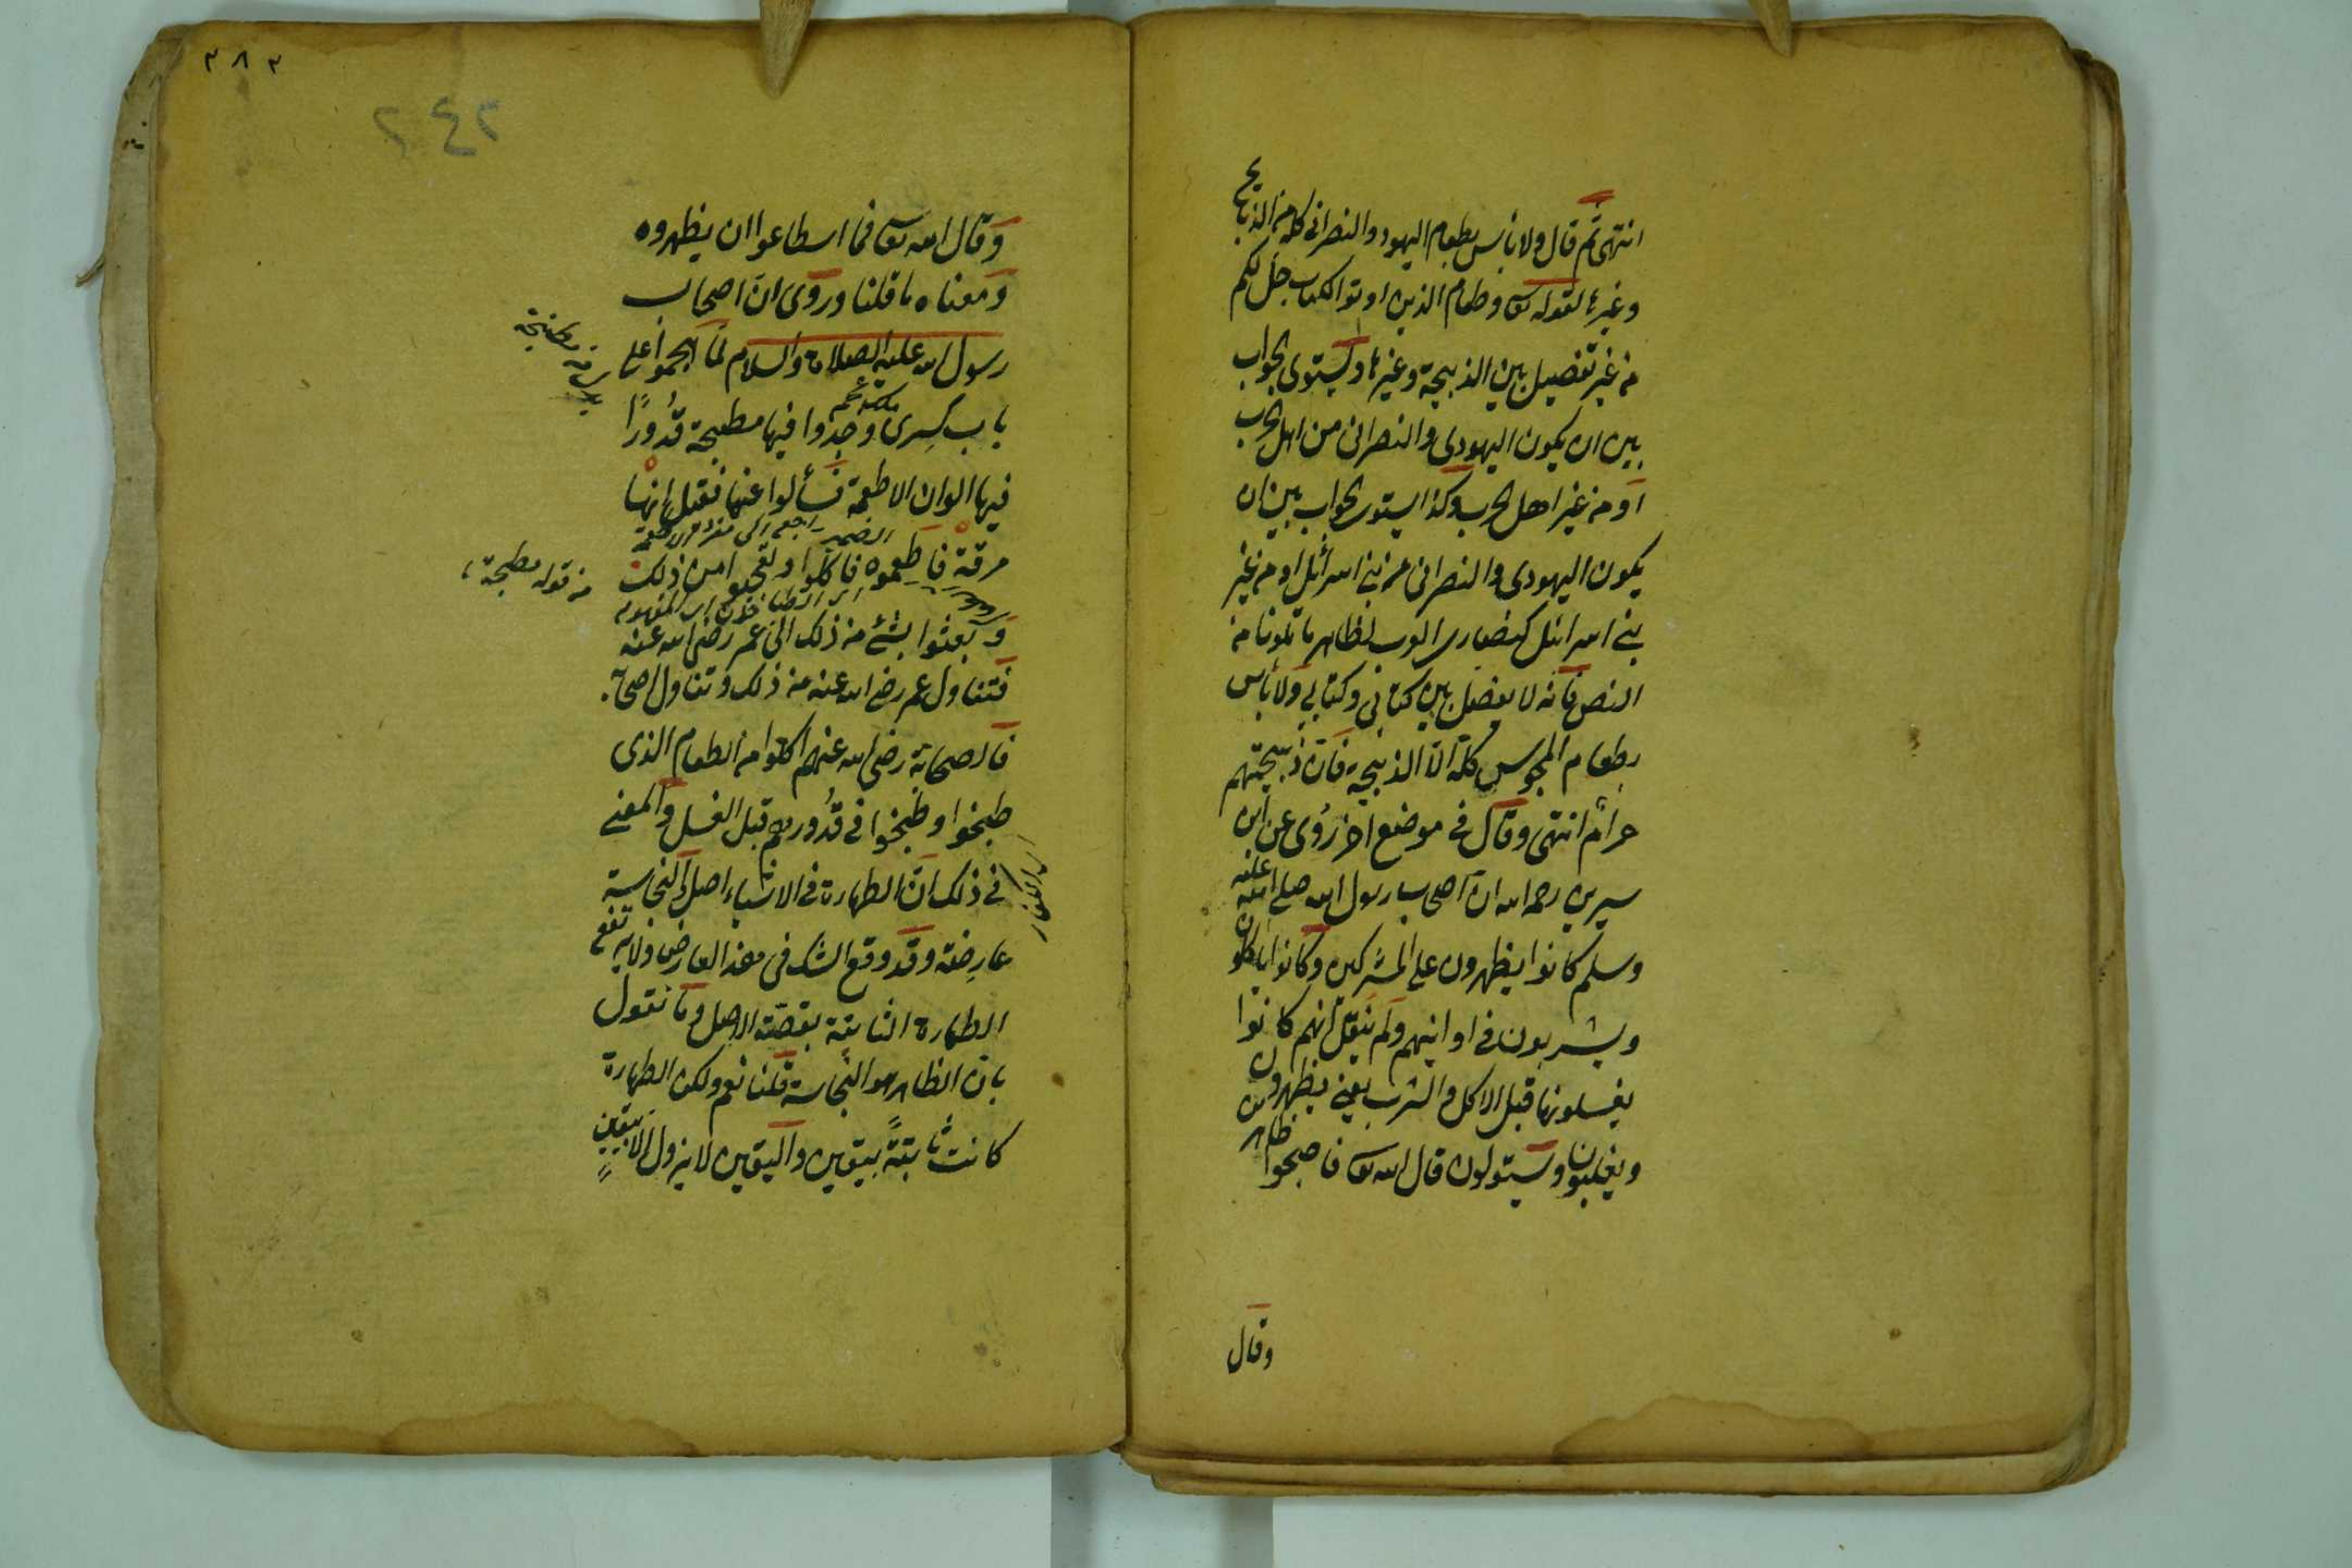 انتهى ثم قال ولا بأس بطعام اليهود والنصرانى كله من الذبائح
وغيرها لقوله تعا وطعام الذين اوتوا الكتاب حل لكم
من غير تفصيل بين الذبيحة وغيرها ويستوى الجواب
بين ان يكون اليهودى والنصرانى من اهل الحرب
او من غير اهل الحرب وكذا يستوى الجواب بين ان
يكون اليهودى والنصرانى من بنى اسرائيل او من غير
بنى اسرائيل كنصارى العرب لظاهر ما تلونا من
النص فانه لا يفصل بين كتابى وكتابى ولا بأس
بطعام المجوس كله الا الذبيحة فان ذبيحتهم
حرام انتهى وقال فى موضع اخر روى عن ابن
سيرين رحمه الله ان اصحاب رسول الله صلى الله عليه
وسلم كانوا يظهرون على المشركين وكانوا يأكلون
ويشربون فى اوانيهم ولم ينقل انهم كانوا
يغسلونها قبل الاكل والشرب يعنى يظهرون
ويغلبون ويستولون قال الله تعا فاصبحوا ظاهرين
وقال
٣٨٣
٢٤٢
وقال الله تعا فما اسطاعوا ان يظهروه
ومعناه ما قلنا وروى ان اصحاب
رسول الله عليه الصلاة والسلام لما هجموا على
باب كسرى وجدوا فيها مطبخة قدورا
فيها الوان الاطعمة فسألوا عنها فقيل انها
الضمير راجع الى
مرقة فاطعموه فاكلوا وتعجبوا من ذلك
وبعثوا بشئ من ذلك الى عمر رضى الله عنه
فتناول عمر رضى الله عنه من ذلك وتناول اصحابه
فالصحابة رضى الله عنهم اكلوا من الطعام الذى
طبخوا وطبخوا فى قدورهم قبل الغسل والمعنى
فى ذلك ان الطهارة فى الاشياء اصل والنجاسة
عارضة وقد وقع الشك فى هذا العارض فلا يرتفع
الطهارة الثابتة بقضية الاصل وما نقول
بان الظاهر هو النجاسة قلنا نعم ولكن الطهارة
كانت ثابتة بيقين واليقين لا يزول الا بيقين
من قوله مطبخة